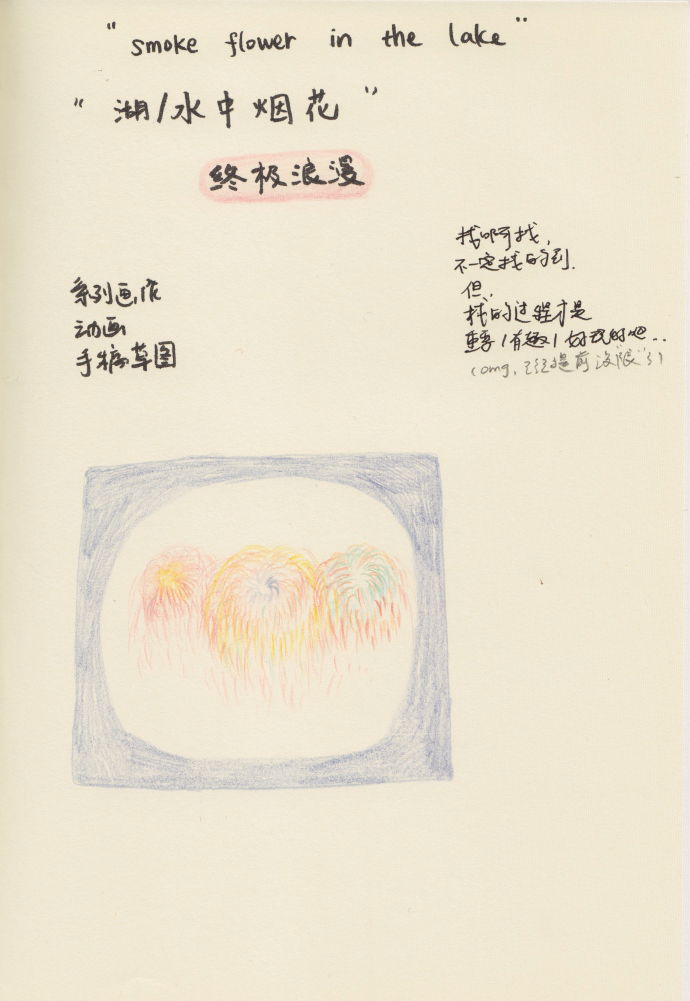 "smoke flower in the lake"
"湖/水中烟花"
终极浪漫
找啊找,
不一定找的到.
但,
找的过程才是
重要/有趣/好玩的吧..
(omg, 已经提前设"限"了)
系列画作
动画
手稿草图